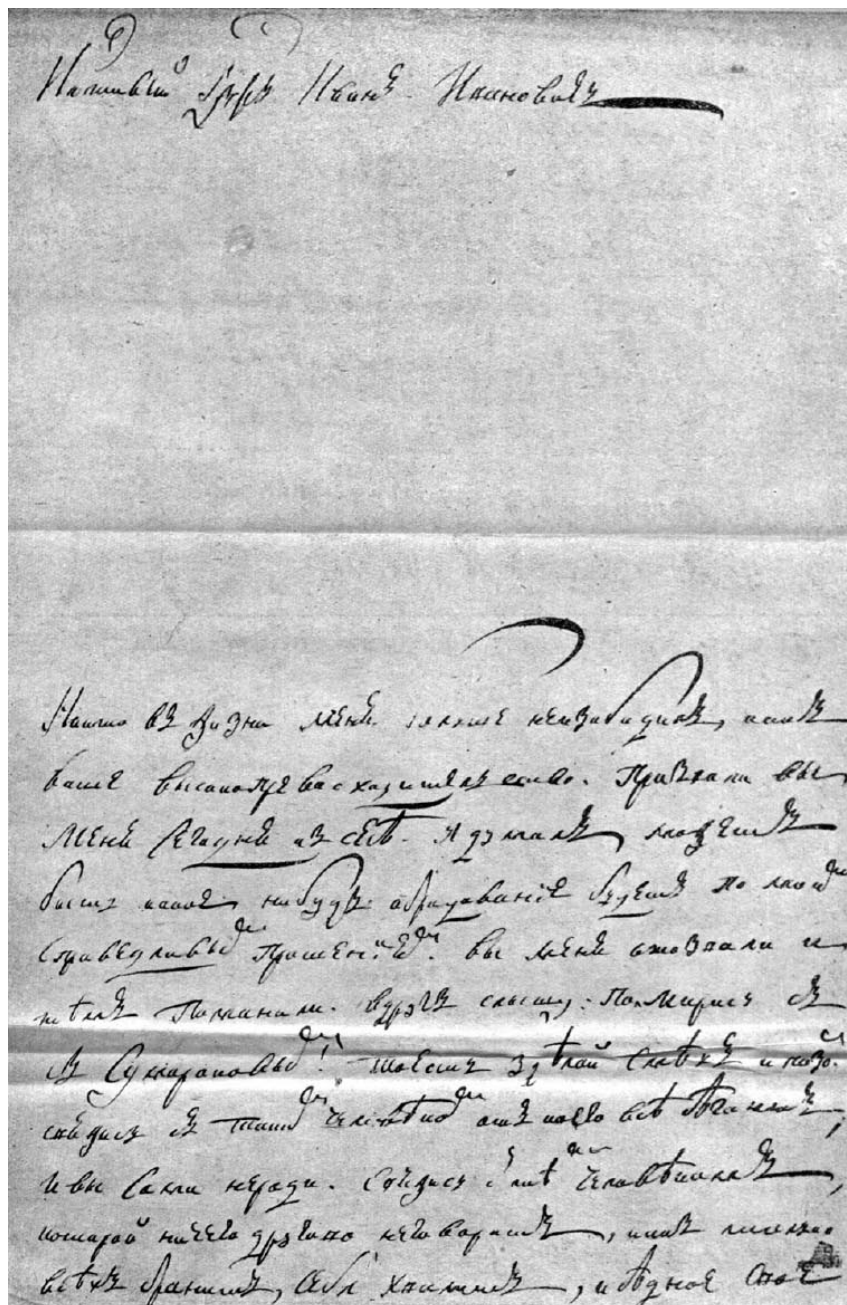 Млстивый Гдрь Иванъ Ивановичъ
Никто въ жизни меня больше неизобидилъ, какъ
ваше высокопревосходительство. Призвали вы
меня сегодня къ себѣ. Я думалъ, можетъ
быть какое нибудь обрадованіе будетъ по моимъ
справедливымъ прошеніямъ. вы меня отозвали и
тѣмъ поманили. Вдругъ слышу: Помирись съ
съ Сумароковымъ! то есть здѣлай смѣхъ и позоръ.
свяжись съ такимъ человѣкомъ отъ коего всѣ бѣгаютъ;
и вы сами неради. Свяжись съ тѣмъ человѣкомъ,
которой ничего другово неговоритъ, какъ только
всѣхъ бранитъ, себя хвалитъ, и бѣдное свое